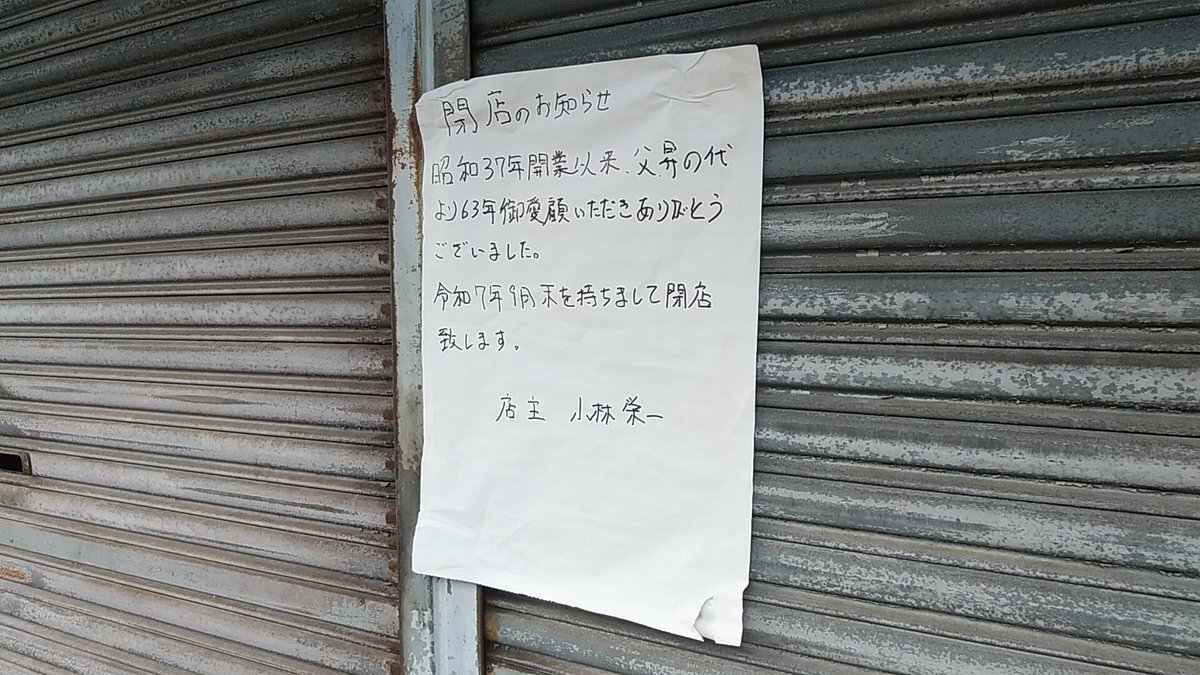 閉店のお知らせ
昭和37年開業以来、父、昇の代
より63年御愛顧いただきありがとう
ございました。
令和7年9月末を持ちまして閉店
致します。
店主 小林栄一